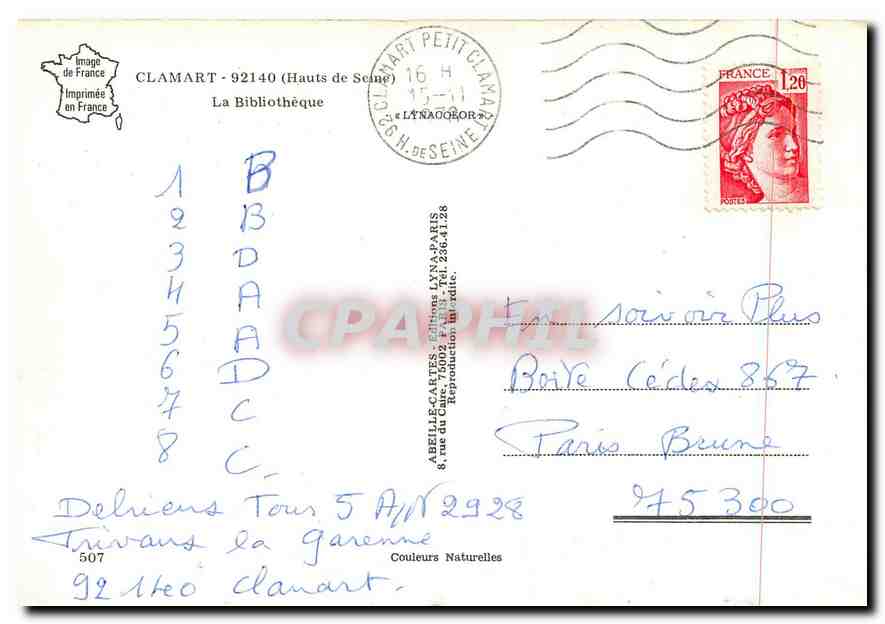 Image
de France
Imprimée
en France
CLAMART - 92140 (Hauts de Seine)
La Bibliothèque
CLAMART PETIT CLAMART
16 H
15-11
92 H. DE SEINE
« LYNACOLOR »
FRANCE 1,20
POSTES
1 B
2 B
3 D
4 A
5 A
6 D
7 C
8 C
ABEILLE-CARTES - Editions LYNA-PARIS
8, rue du Caire, 75002 PARIS - Tél. 236.41.28
Reproduction interdite.
CPAPHIL
En soivoir Plus
Boite Cédex 867
Paris Brune
75300
Delriens Tour 5 App 2928
Trivaus la Garenne
92140 Clamart.
507
Couleurs Naturelles